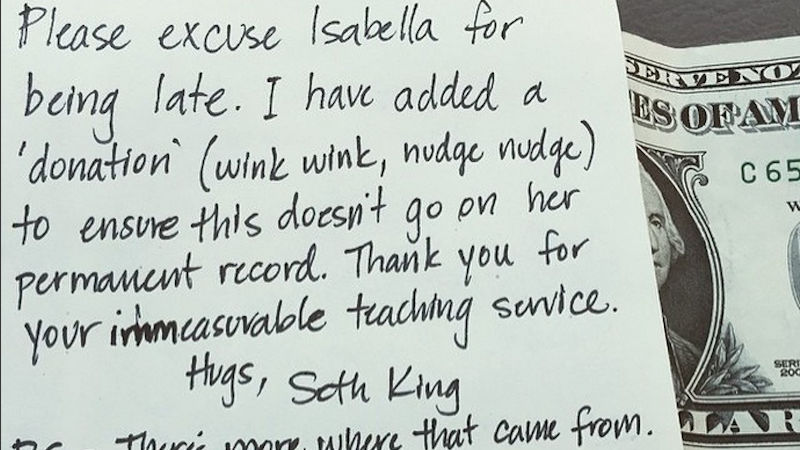 Please excuse Isabella for
being late. I have added a
'donation' (wink wink, nudge nudge)
to ensure this doesn't go on her
permanent record. Thank you for
your immeasurable teaching service.
Hugs, Seth King
P.S. There's more where that came from.
ERVE NO
ES OF AM
C 65
W
SERI
200
LLAR